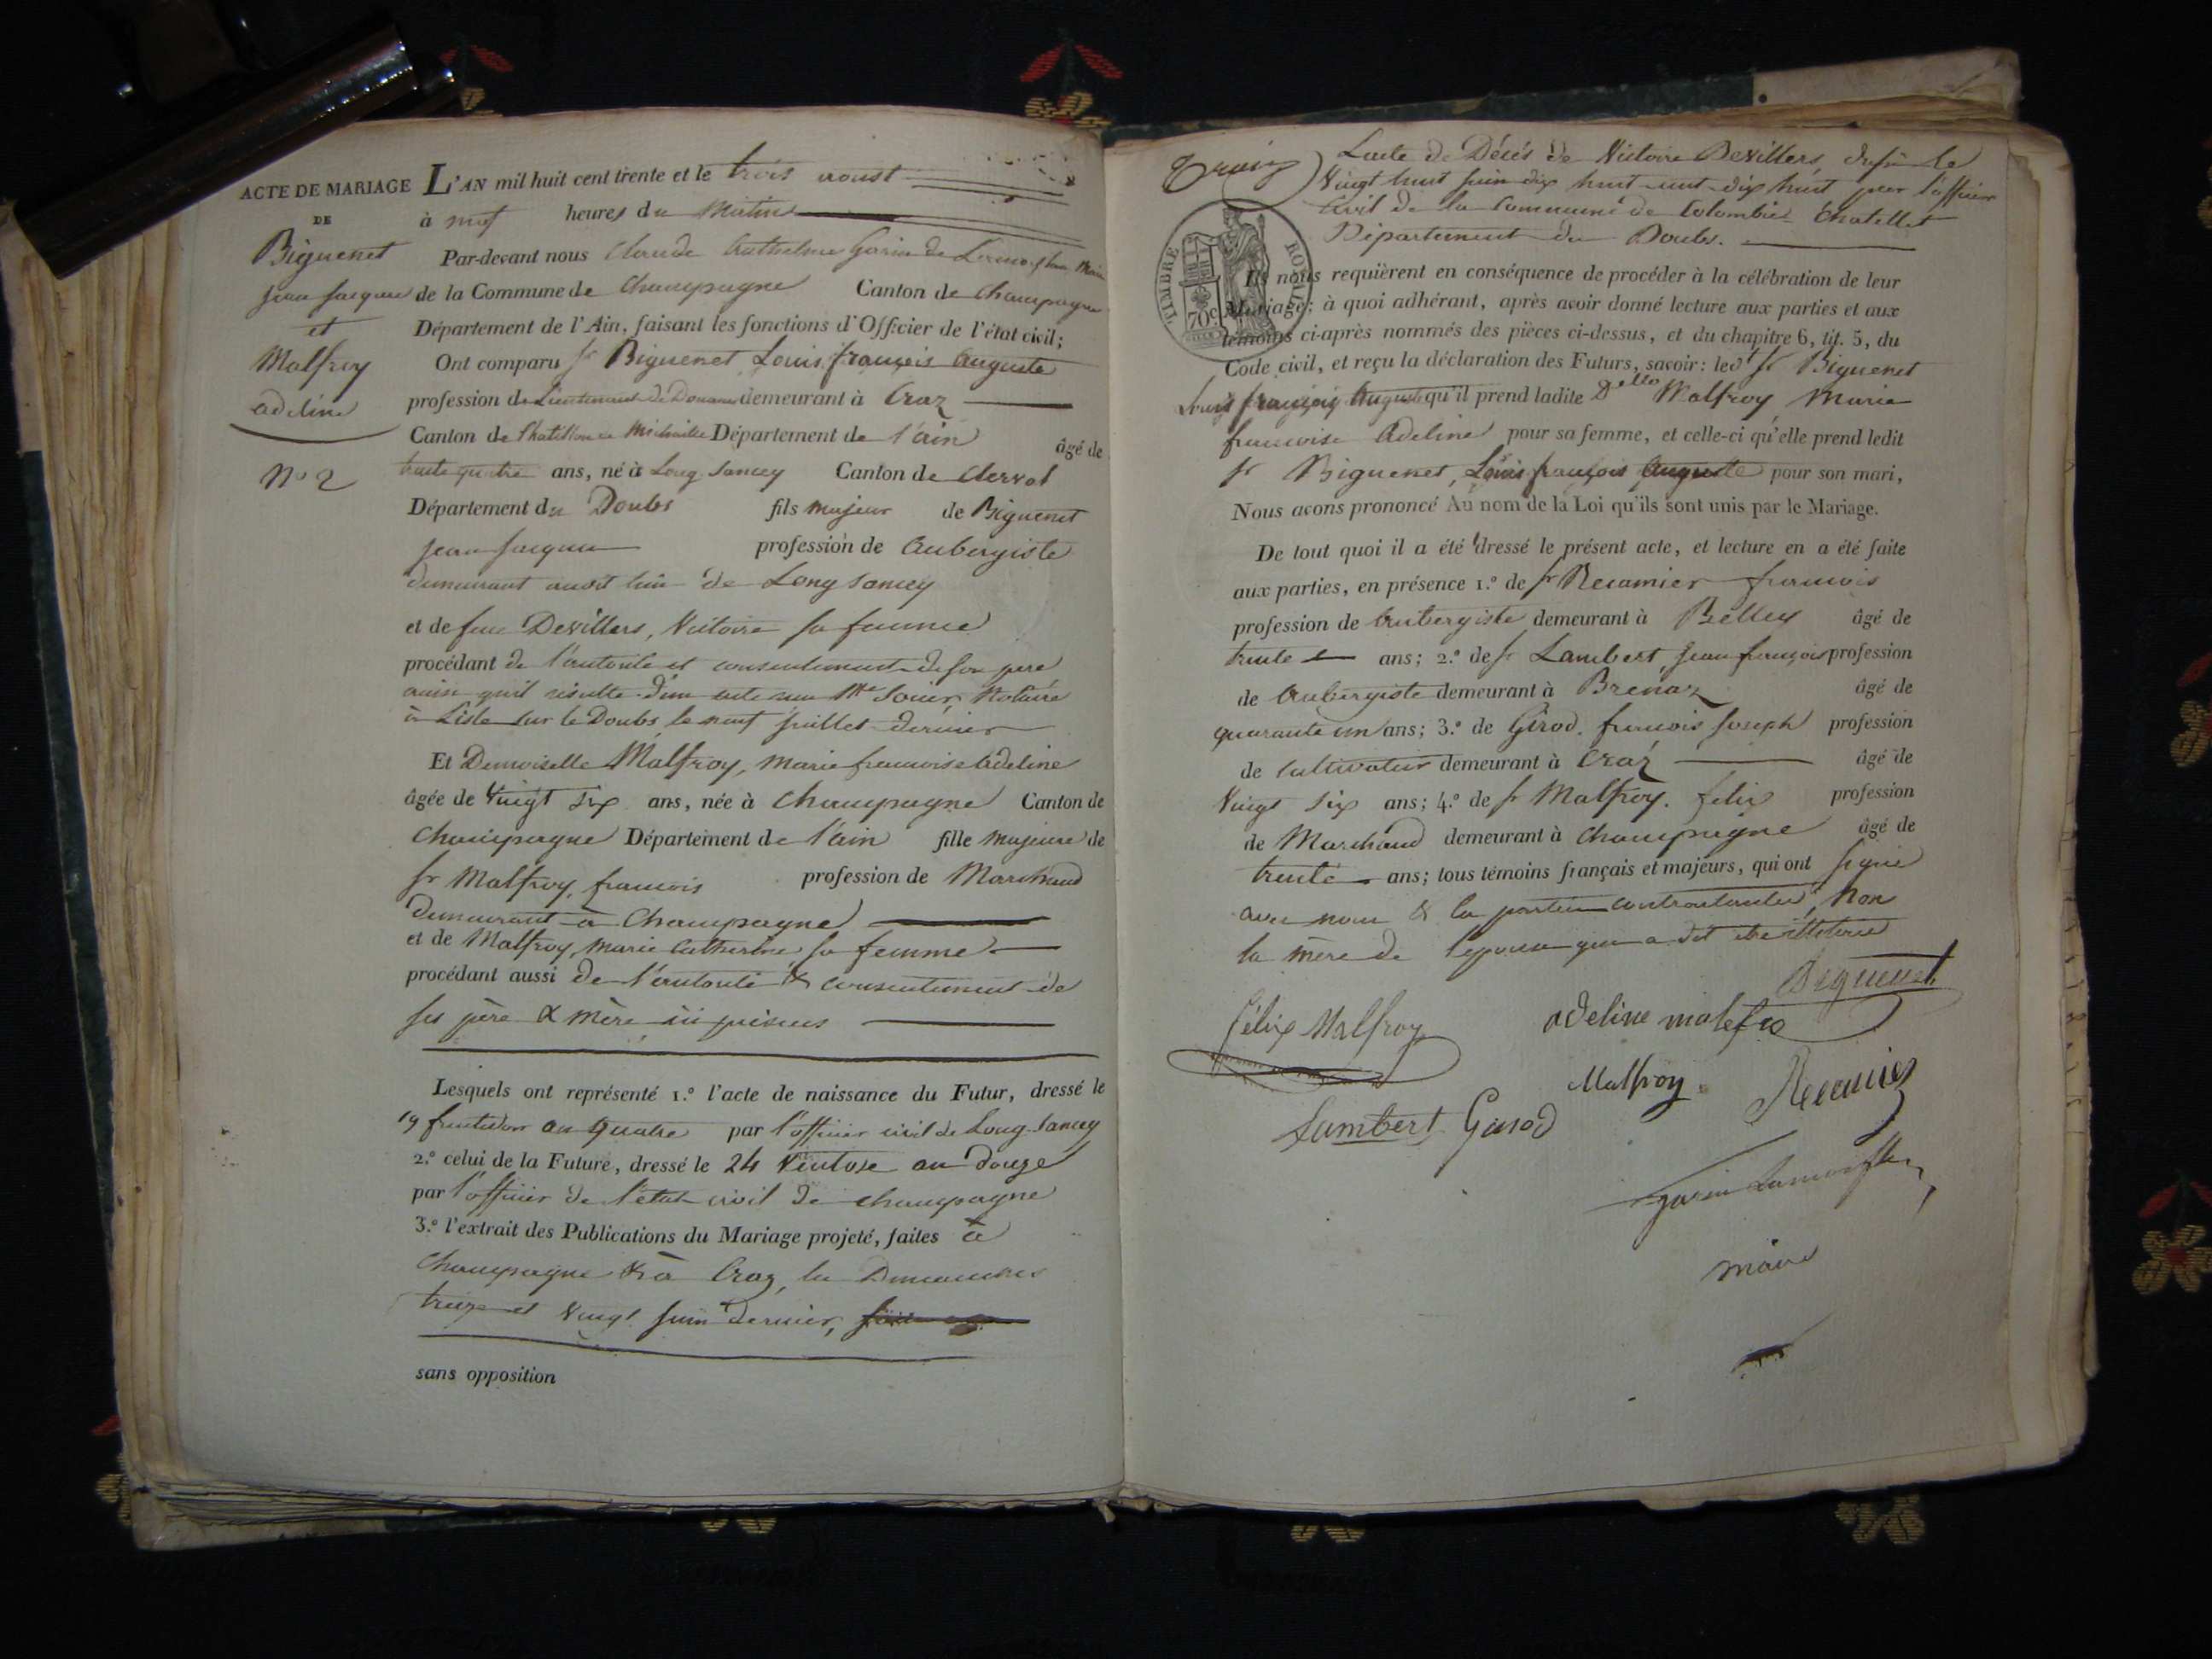 ACTE DE MARIAGE
DE
Biguenet
Jean Jacques
et
Malfroy
adeline
N.o 2
L'AN mil huit cent trente et le trois aoust
à neuf heures du Matin
Par-devant nous Claude Anthelme Garin de Maire
de la Commune de Champagne Canton de Champagne
Département de l'Ain, faisant les fonctions d'Officier de l'état civil;
Ont comparu Sr Biguenet Louis françois Auguste
profession de Lieutenant de Douanes demeurant à Craz
Canton de Chatillon de Michaille Département de l'ain âgé de
trente quatre ans, né à Long Sancey Canton de Clerval
Département du Doubs fils majeur de Biguenet
Jean Jacques profession de Aubergiste
demeurant audit lieu de Long Sancey
et de feue Devillers, Victoire sa femme
procédant de l'autorité et consentement de son père
ainsi qu'il résulte d'un acte reçu Me Notaire
à Lisle sur le Doubs le neuf juillet dernier
Et Demoiselle Malfroy, Marie francoise Adeline
âgée de Vingt Six ans, née à Champagne Canton de
Champagne Département de l'ain fille majeure de
Sr Malfroy, francois profession de Marchand
demeurant à Champagne
et de Malfroy, Marie Catherine sa femme
procédant aussi de l'autorité & consentement de
ses père & mère ici présens
Lesquels ont représenté 1.º l'acte de naissance du Futur, dressé le
19 fructidor an quatre par l'officier civil de Long Sancey
2.º celui de la Future, dressé le 24 Ventose an douze
par l'officier de l'état civil de champagne
3.º l'extrait des Publications du Mariage projeté, faites à
Champagne & à Craz les Dimanches
treize et Vingt juin dernier,
sans opposition
L'acte de Décès de Victoire Devillers, dressé le
Vingt huit juin dix huit cent dix huit par l'officier
Civil de la Commune de Colombier Chatellot
Département du Doubs.
TIMBRE ROYAL
70c
Ils nous requièrent en conséquence de procéder à la célébration de leur
Mariage; à quoi adhérant, après avoir donné lecture aux parties et aux
témoins ci-après nommés des pièces ci-dessus, et du chapitre 6, tit. 5, du
Code civil, et reçu la déclaration des Futurs, savoir: ledt Sr Biguenet
Louis françois Auguste qu'il prend ladite Dello Malfroy Marie
francoise Adeline pour sa femme, et celle-ci qu'elle prend ledit
Sr Biguenet, Louis françois Auguste pour son mari,
Nous avons prononcé Au nom de la Loi qu'ils sont unis par le Mariage.
De tout quoi il a été dressé le présent acte, et lecture en a été faite
aux parties, en présence 1.º de Sr Recamier francois
profession de Aubergiste demeurant à Belley âgé de
trente ans; 2.º de Sr Lambert, Jean françois profession
de Aubergiste demeurant à Brenaz âgé de
quarante un ans; 3.º de Girod, francois Joseph profession
de Cultivateur demeurant à Craz âgé de
Vingt Six ans; 4.º de Sr Malfroy, felix profession
de Marchand demeurant à Champagne âgé de
trente ans; tous témoins français et majeurs, qui ont signé
avec nous & les parties contractantes, Non
la mère de l'epouse qui a dit être illeterée
Biguenet
félix Malfroy
adeline malefro
Malfroy
Recamier
Lambert
Girod
garin
maire